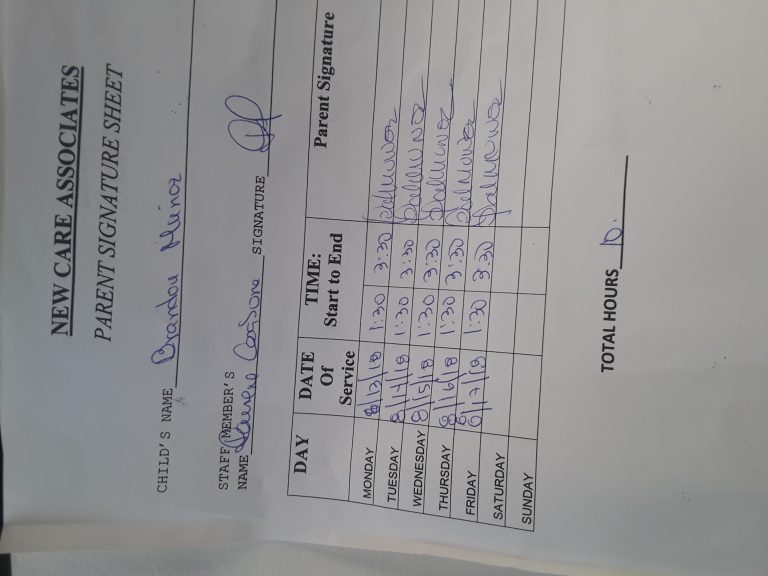 NEW CARE ASSOCIATES
PARENT SIGNATURE SHEET
CHILD'S NAME Brandon Muñoz
STAFF MEMBER'S
NAME SIGNATURE
DAY DATE Of Service TIME: Start to End Parent Signature
MONDAY 8/13/18 1:30 3:30
TUESDAY 8/14/18 1:30 3:30
WEDNESDAY 8/15/18 1:30 3:30
THURSDAY 8/16/18 1:30 3:30
FRIDAY 8/17/18 1:30 3:30
SATURDAY
SUNDAY
TOTAL HOURS 10.